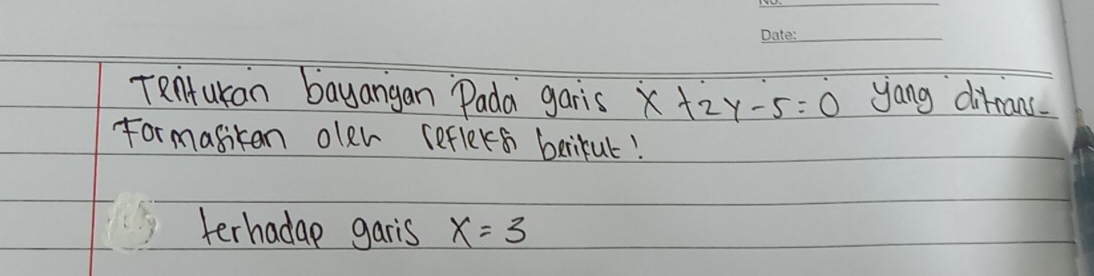 No.
Date:
Tentukan bayangan Pada garis x + 2y - 5 = 0 yang ditrans-
formasikan oleh refleksi berikut!
terhadap garis x = 3